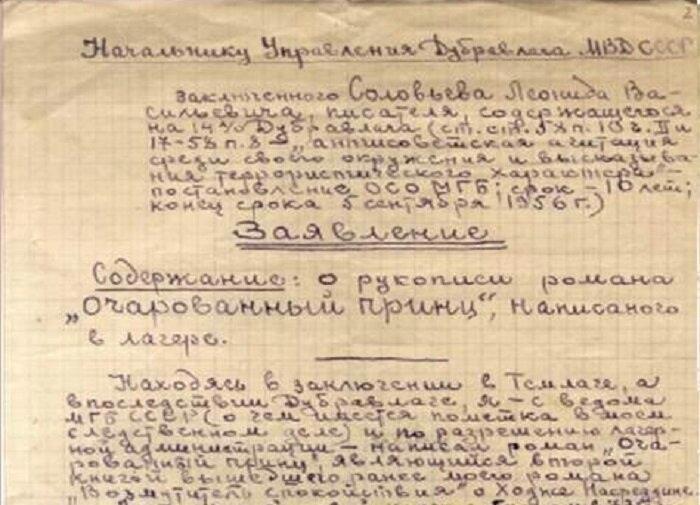 2
Начальнику Управления Дубравлага МВД СССР
заключенного Соловьева Леонида Ва-
сильевича, писателя, содержащегося
на 14 л/о Дубравлага (ст. ст. 58 п. 10 ч. II и
17-58 п. 8 – „антисоветская агитация
среди своего окружения и высказыва
ния террористического характера" –
постановление ОСО МГБ; срок – 10 лет;
конец срока 5 сентября 1956 г.)
Заявление
Содержание: о рукописи романа
„Очарованный принц", написаного
в лагере.
Находясь в заключении в Темлаге, а
впоследствии Дубравлаге, я – с ведома
МГБ СССР (о чем имеется пометка в моем
следственном деле) и по разрешению лагер-
ной администрации – написал роман „Оча-
рованный принц, являющийся второй
книгой вышедшего ранее моего романа
„Возмутитель спокойствия" о Ходже Насреддине.